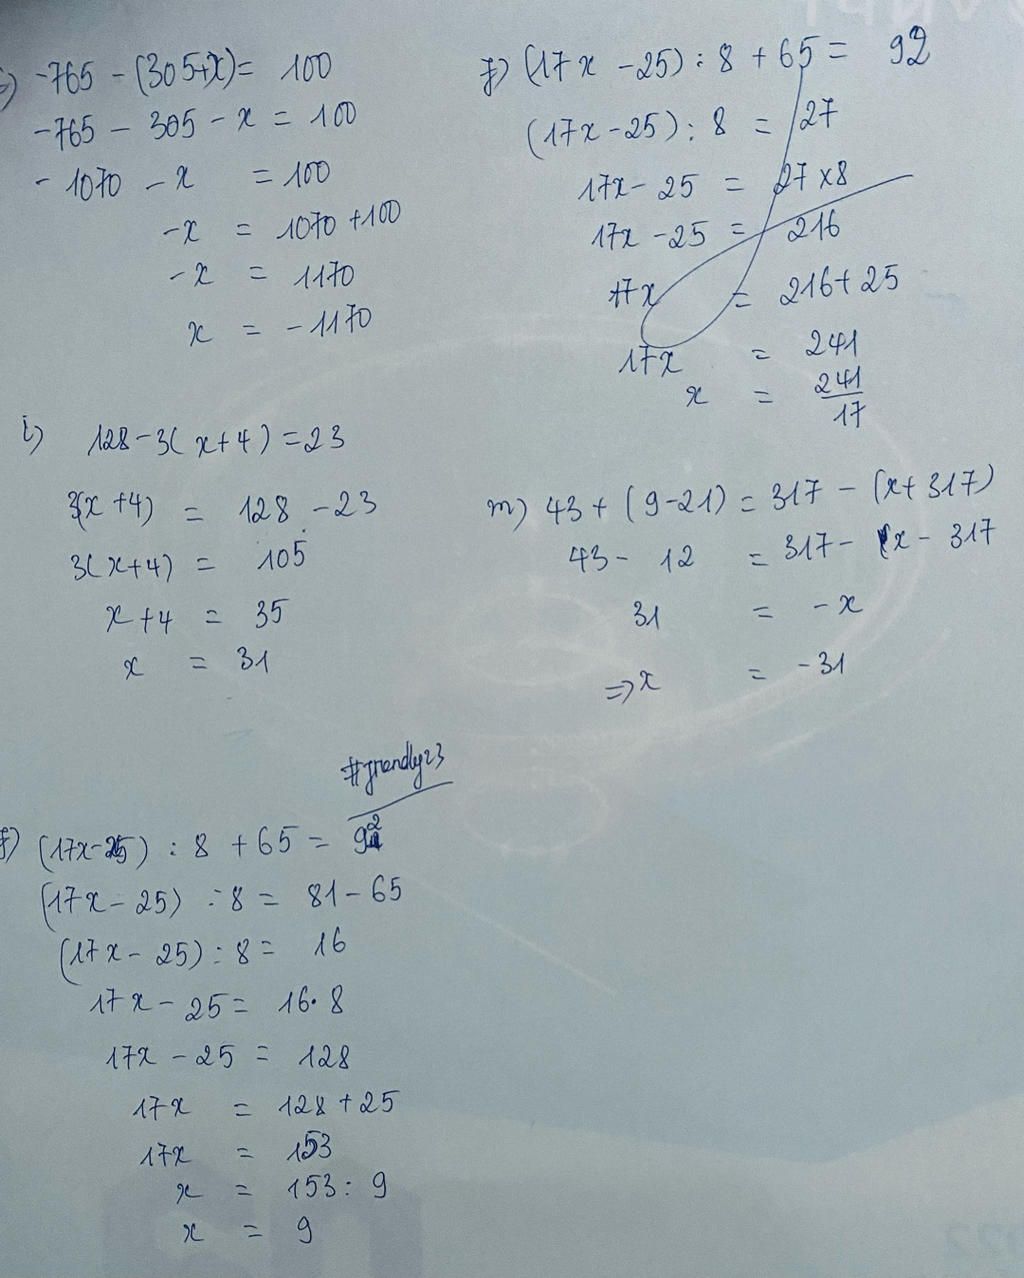 c) -765 - (305+x) = 100
-765 - 305 - x = 100
- 1070 - x = 100
-x = 1070 + 100
-x = 1170
x = -1170
f) (17x - 25) : 8 + 65 = 92
(17x - 25) : 8 = 27
17x - 25 = 27 x 8
17x - 25 = 216
17x = 216 + 25
17x = 241
x = 241/17
i) 128 - 3( x+4 ) = 23
3(x +4) = 128 - 23
3( x+4) = 105
x +4 = 35
x = 31
m) 43 + ( 9 -21) = 317 - (x+ 317)
43 - 12 = 317 - x - 317
31 = - x
=> x = -31
f) (17x - 25) : 8 + 65 = 9²
(17x - 25) : 8 = 81 - 65
(17x - 25) : 8 = 16
17x - 25 = 16 . 8
17x - 25 = 128
17x = 128 + 25
17x = 153
x = 153 : 9
x = 9